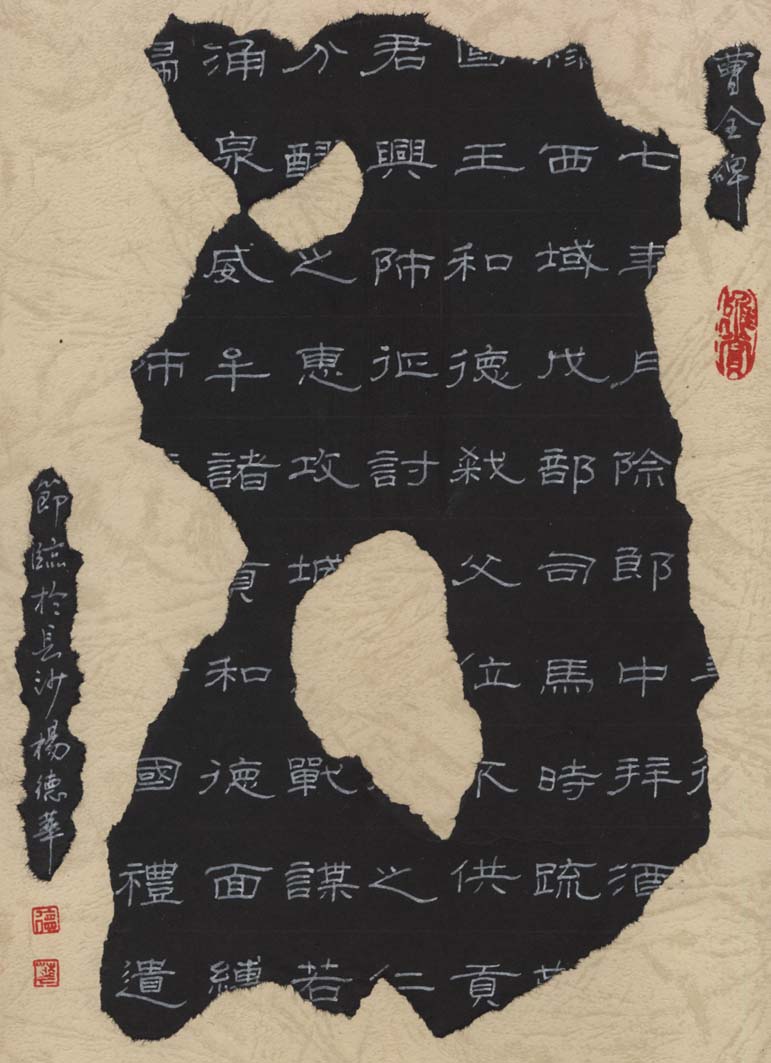 曹全碑
雅賞
七年月除郎中拜酒
西域戊部司馬時疏
國王和德弑父位不供貢
君興師征討之仁
分醪之惠攻城戰謀若
涌泉威牟諸賁和德面縛
歸師國禮遺
節臨於長沙楊德華
德
華